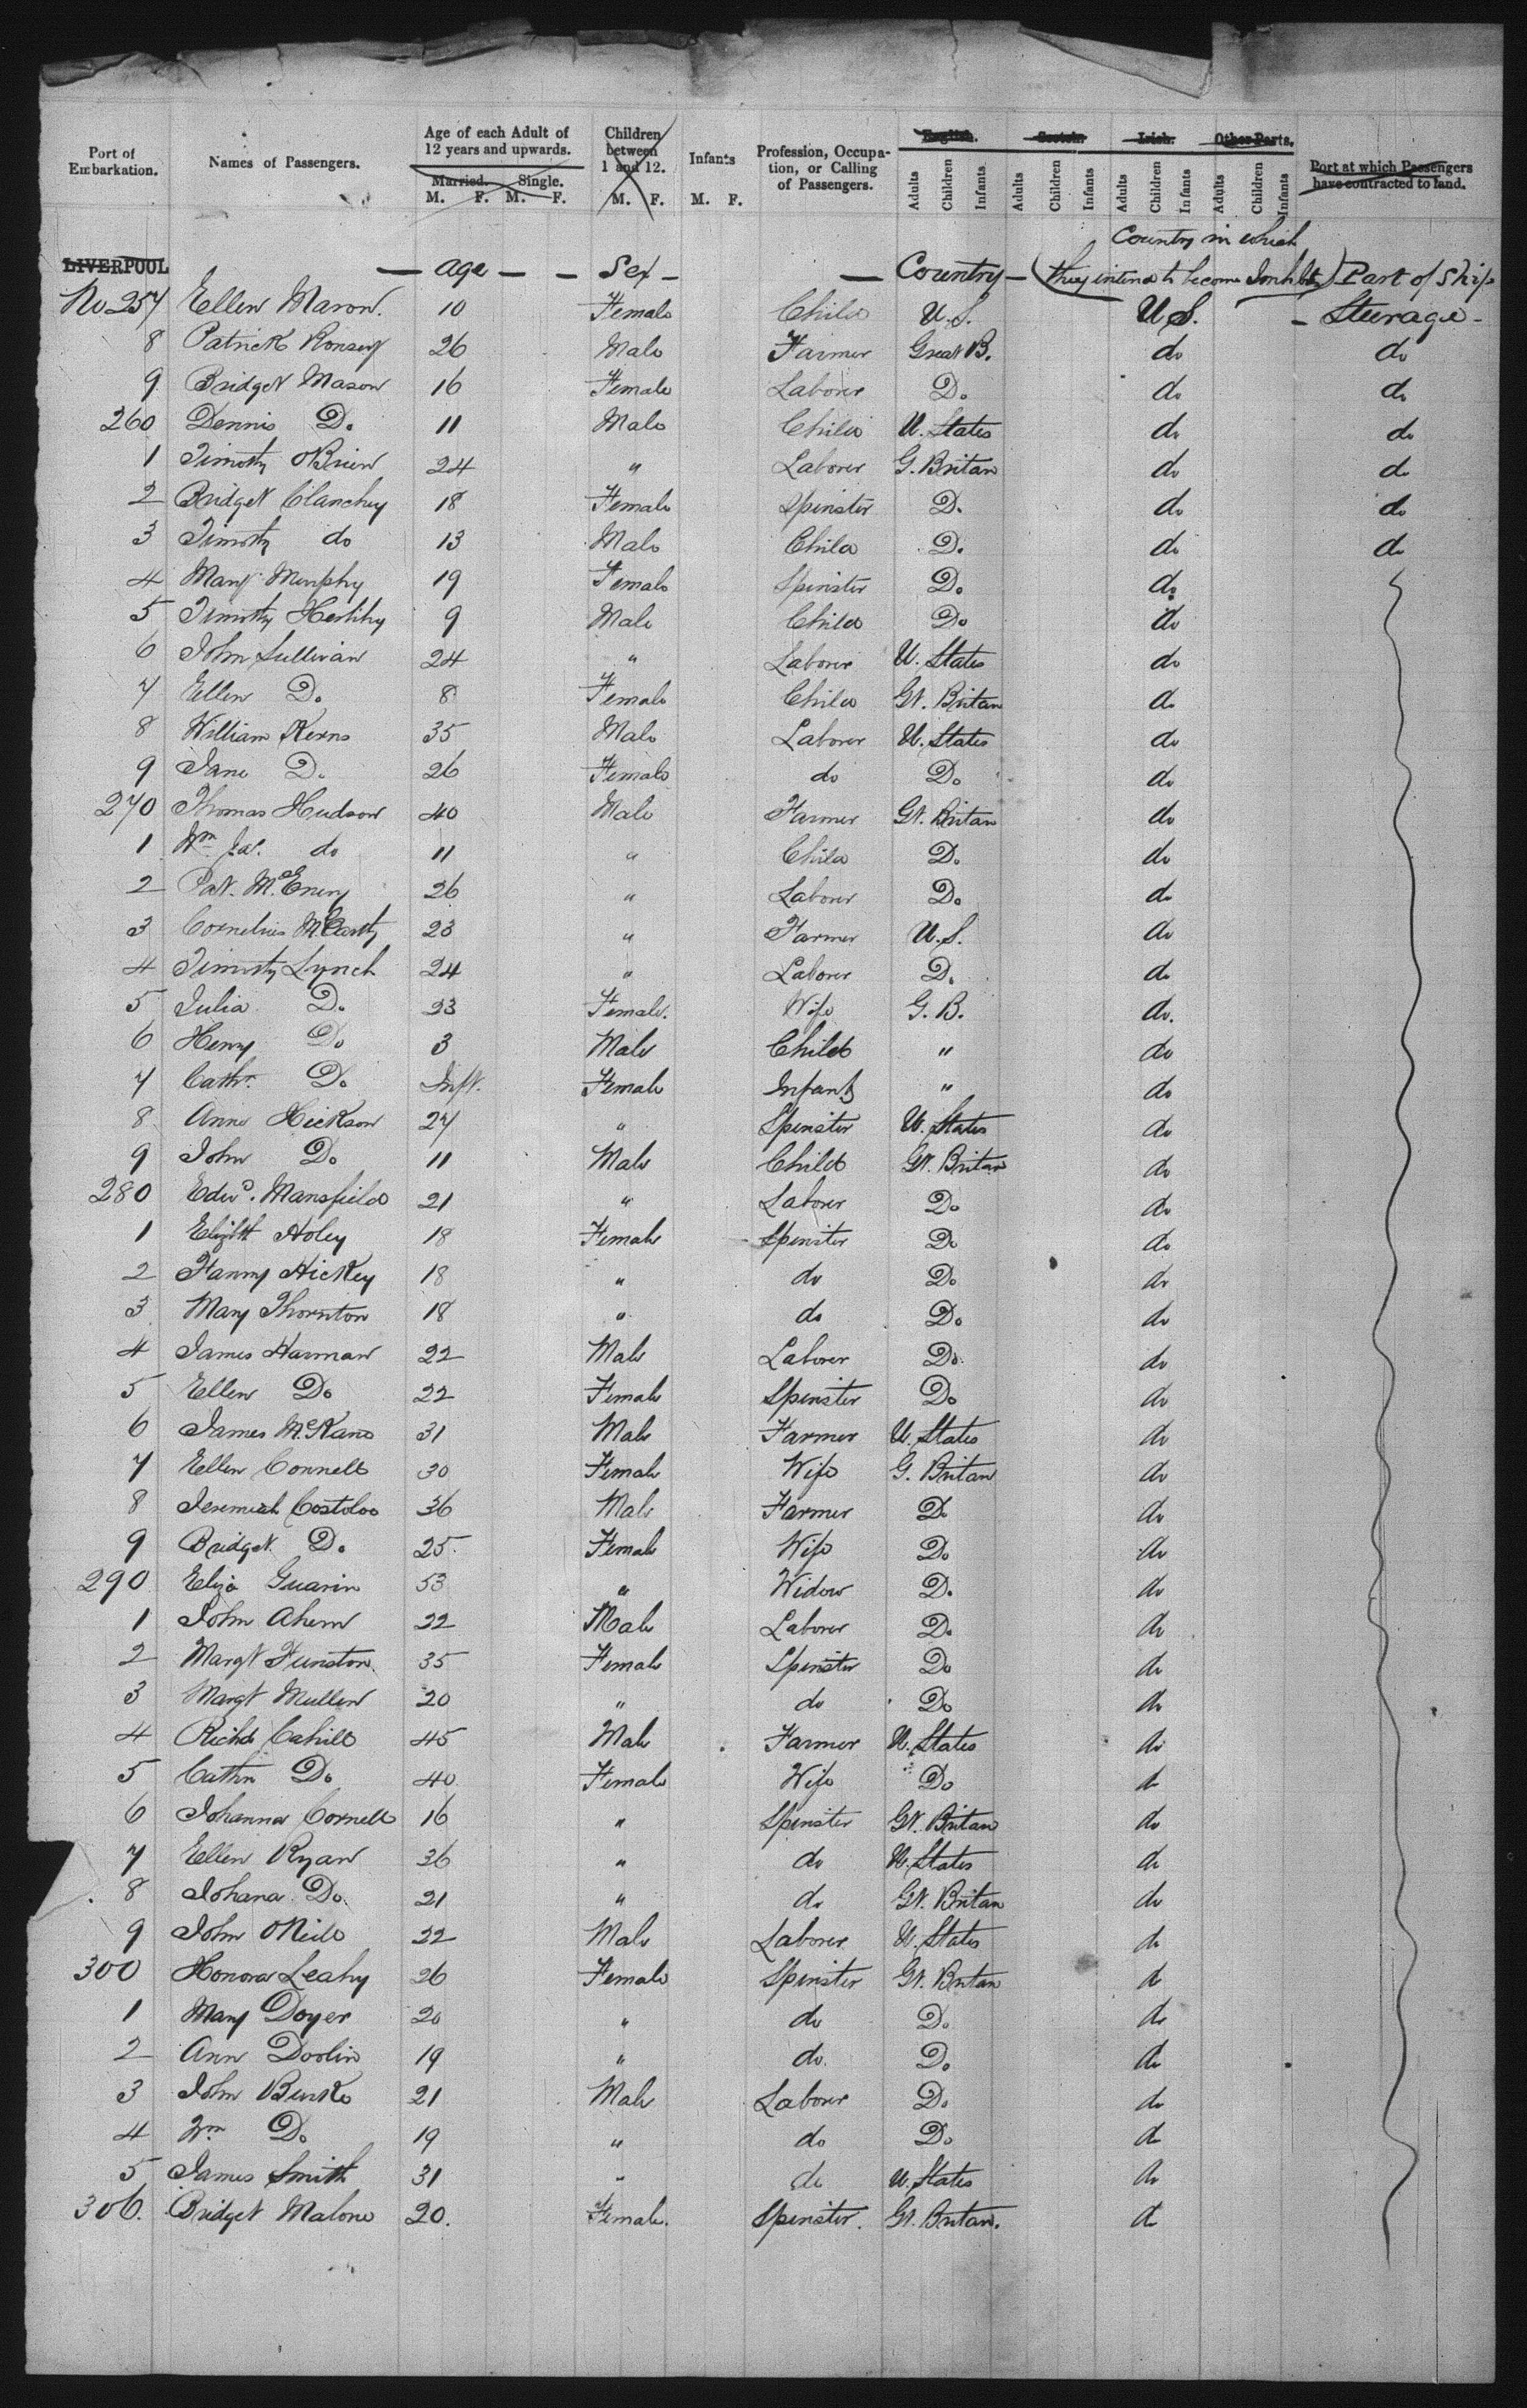 Port of Embarkation. Names of Passengers. Age of each Adult of 12 years and upwards. Children between 1 and 12. Infants Profession, Occupation, or Calling of Passengers. English. Scotch. Irish. Other Parts. Port at which Passengers have contracted to land.
Married. Single.
M. F. M. F. M. F. M. F. Adults Children Infants Adults Children Infants Adults Children Infants Adults Children Infants
Country in which
LIVERPOOL — age — — Sex — — Country — (they intend to become Inhbts) Part of Ship
No 257 Ellen Mason. 10 Female Child U.S. U.S. - Steerage -
8 Patrick 26 Male Farmer Great B. do do
9 Bridget Mason 16 Female Laborer Do do do
260 Dennis Do 11 Male Child U. States do do
1 Timothy OBrien 24 " Laborer G. Britan do do
2 Bridget Clanchey 18 Female Spinster Do do do
3 Timothy do 13 Male Child Do do do
4 Mary Murphy 19 Female Spinster Do do
5 Timothy Herlihy 9 Male Child Do do
6 John Sullivan 24 " Laborer U. States do
7 Ellen Do 8 Female Child Gt. Britan do
8 William Kerns 35 Male Laborer U. States do
9 Jane Do 26 Female do Do do
270 Thomas Hudson 40 Male Farmer Gt. Britan do
1 Wm Jas. do 11 " Child Do do
2 Pat. McEnery 26 " Laborer Do do
3 Cornelius McCarty 23 " Farmer U.S. do
4 Timothy Lynch 24 " Laborer Do do
5 Julia Do 23 Female. Wife G. B. do.
6 Henry Do 3 Male Child " do
7 Cathr. Do Inft. Female Infant " do
8 Anne Hickson 27 " Spinster U. States do
9 John Do 11 Male Child Gt. Britan do
280 Edwd. Mansfield 21 " Laborer Do do
1 Elizbth Holey 18 Female Spinster Do do
2 Fanny Hickey 18 " do Do do
3 Mary Thornton 18 " do Do do
4 James Harman 22 Male Laborer Do do
5 Ellen Do 22 Female Spinster Do do
6 James McKane 31 Male Farmer U. States do
7 Ellen Connell 30 Female Wife G. Britan do
8 Jeremiah Costoloe 36 Male Farmer Do do
9 Bridget Do 25 Female Wife Do do
290 Eliza Guarin 53 " Widow Do do
1 John Ahern 22 Male Laborer Do do
2 Margt Funston 35 Female Spinster Do do
3 Margt Mullen 20 " do Do do
4 Richd Cahill 45 Male Farmer U. States do
5 Cathn Do 40 Female Wife Do do
6 Johanna Cornell 16 " Spinster Gt. Britan do
7 Ellen Ryan 36 " do U. States do
8 Johana Do 21 " do Gt. Britan do
9 John ONeile 22 Male Laborer U. States do
300 Honora Leahy 26 Female Spinster Gt. Britan do
1 Mary Doyer 20 " do Do do
2 Ann Doolin 19 " do. Do do
3 John Burke 21 Male Laborer Do do
4 Wm Do 19 " do Do do
5 James Smith 31 " do U. States do
306. Bridget Malone 20. Female. Spinster. Gt. Britan. do